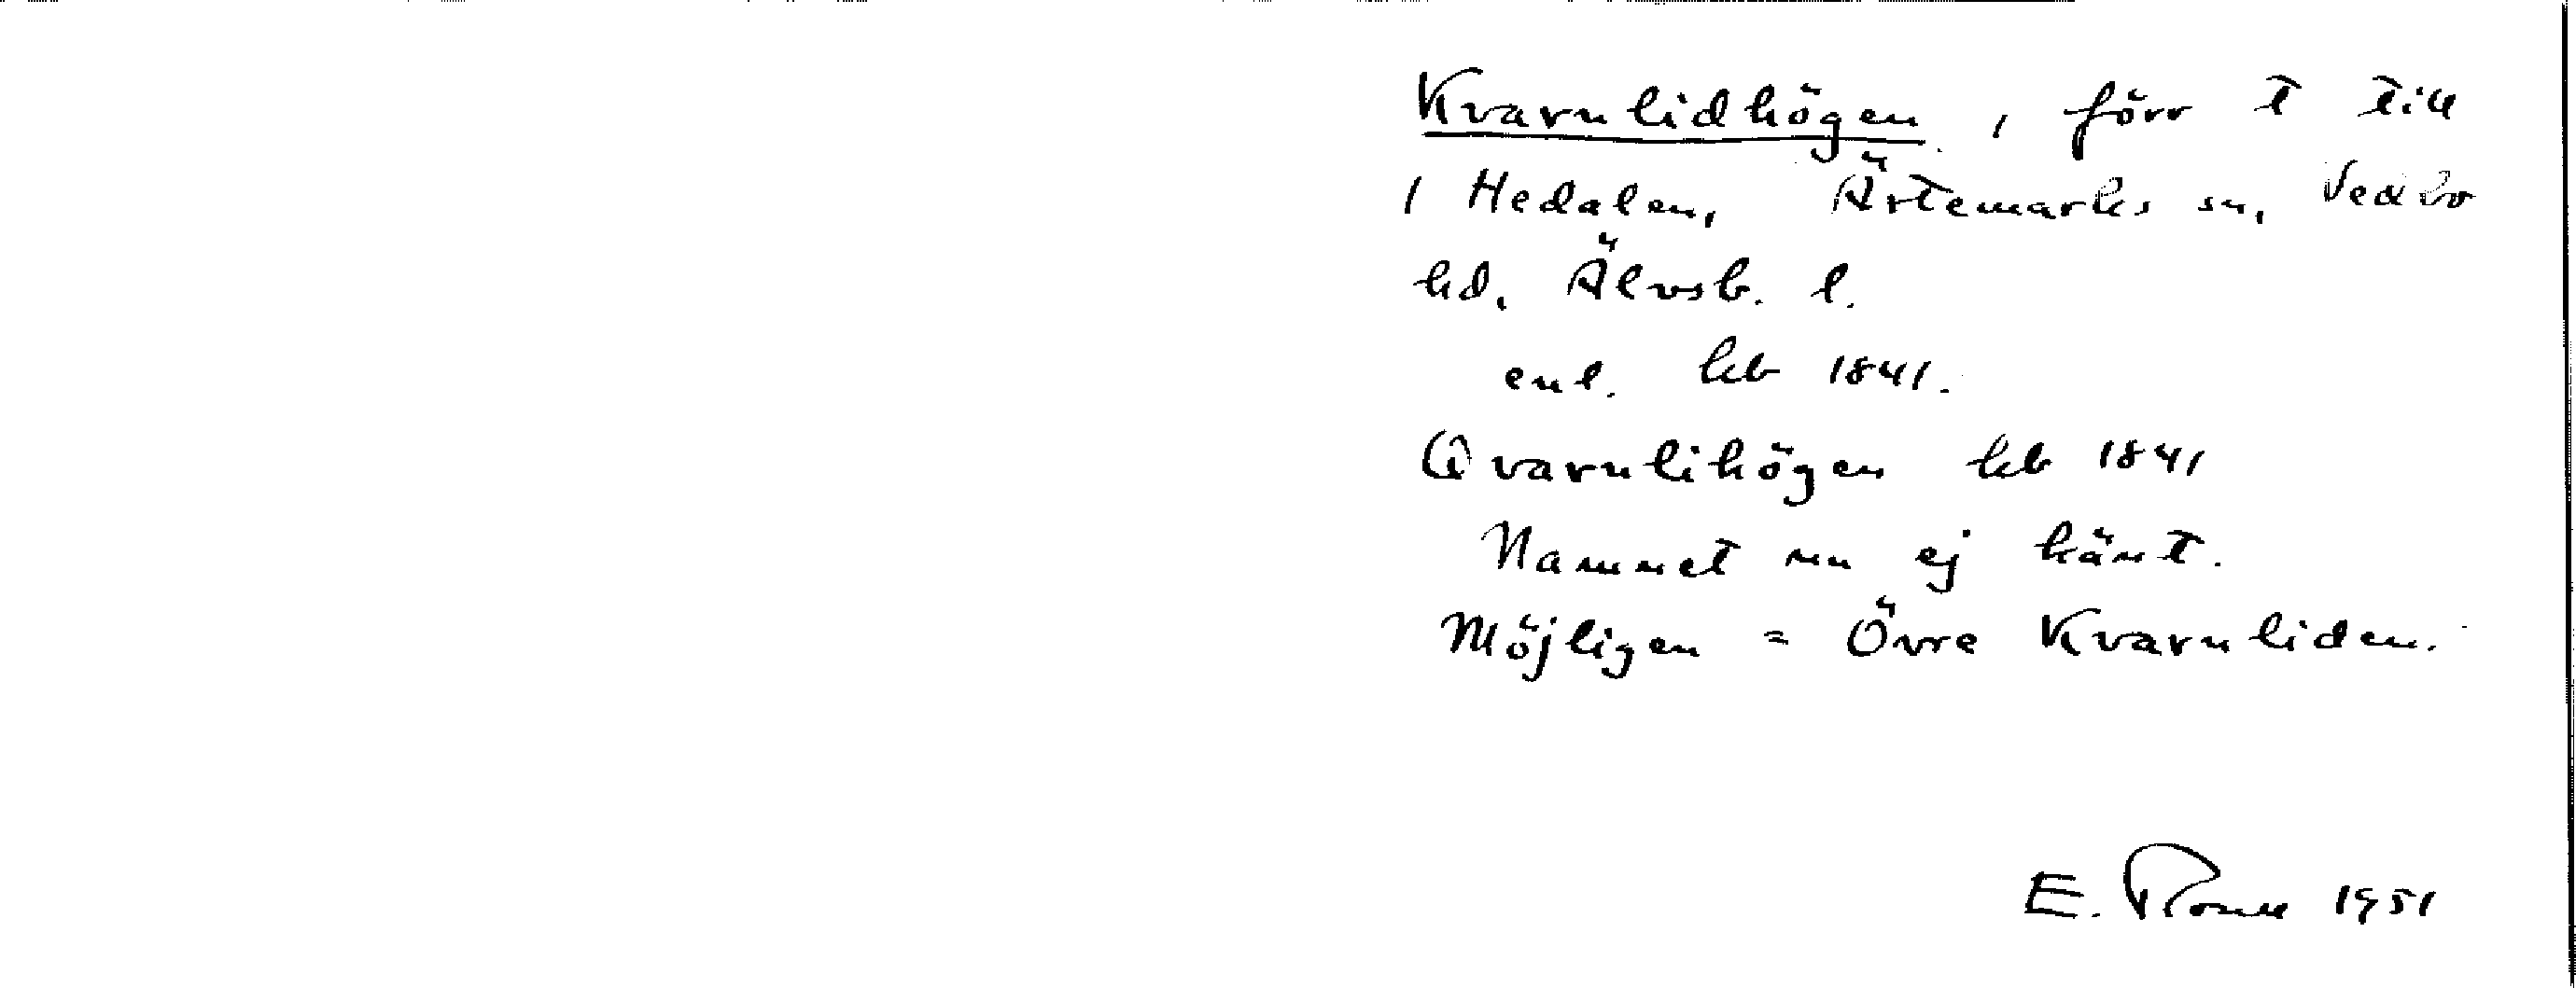 Kvarnlidhögen, förr t till
1 Hedalen, Ärtemarks sn, Vedbo
hd. Älvsb. l.
enl. kb 1841.
Qvarnlihögen kb 1841
Namnet nu ej känt.
Möjligen = Övre Kvarnliden.
E. 1951